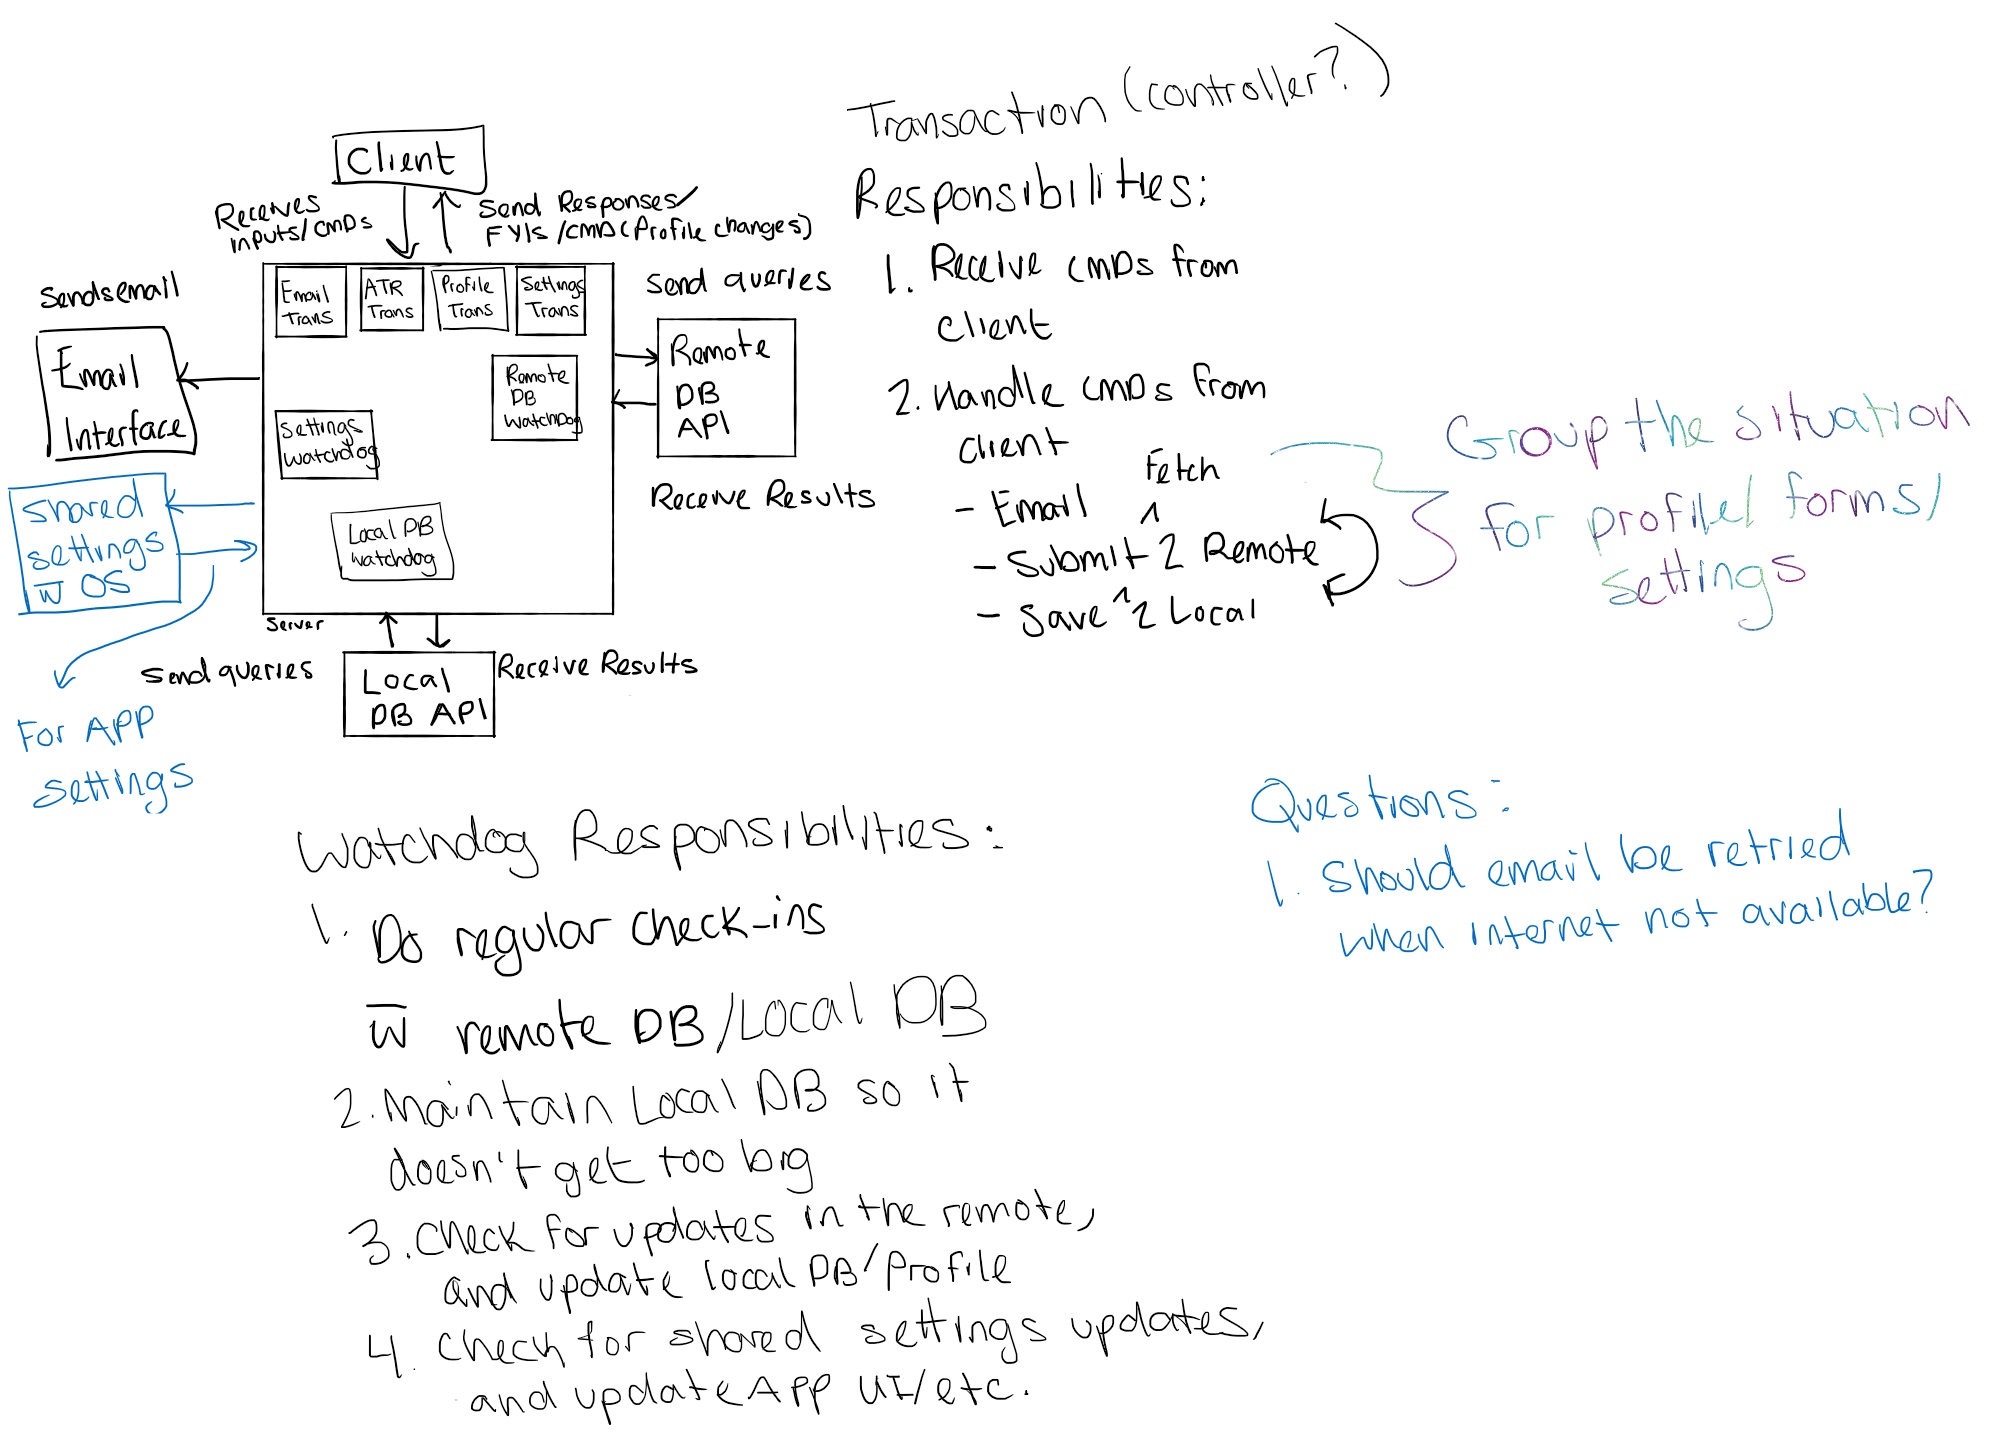 Client
Receives
inputs/CMDs
Send Responses/
FYIs/CMD(Profile changes)
Sends email
Email
Interface
Email
Trans
ATR
Trans
Profile
Trans
Settings
Trans
Remote
DB
WatchDog
Settings
Watchdog
Local DB
Watchdog
Server
Send queries
Remote
DB
API
Receive Results
Shared
settings
w̅ OS
For APP
settings
Send queries
Local
DB API
Receive Results
Transaction (controller?)
Responsibilities:
1. Receive CMDs from
client
2. Handle CMDs from
client
- Email
Fetch
^
- Submit 2 Remote
- Save ^ 2 Local
Group the situation
for profile/ forms/
settings
Watchdog Responsibilities:
1. Do regular check-ins
w̅ remote DB/Local DB
2. Maintain Local DB so it
doesn't get too big
3. Check for updates in the remote,
and update local DB/Profile
4. Check for shared settings updates,
and update APP UI/etc.
Questions:
1. Should email be retried
when internet not available?